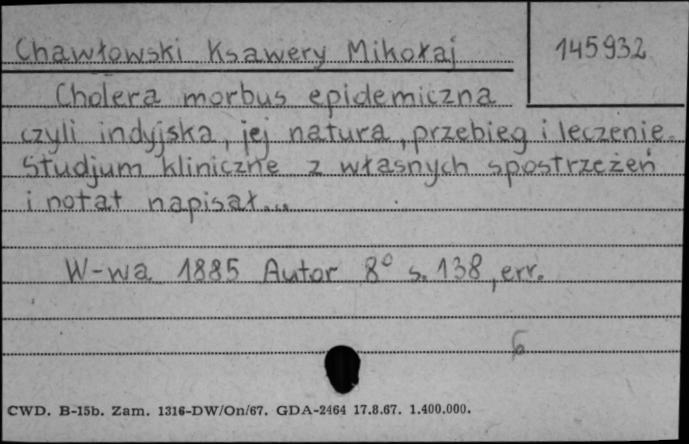 Chawłowski Ksawery Mikołaj
145932
Cholera morbus epidemiczna
czyli indyjska, jej natura, przebieg i leczenie.
Studjum kliniczne z własnych spostrzeżeń
i notat napisał...
W-wa 1885 Autor 8° s. 138, err.
6
CWD. B-15b. Zam. 1316-DW/On/67. GDA-2464 17.8.67. 1.400.000.